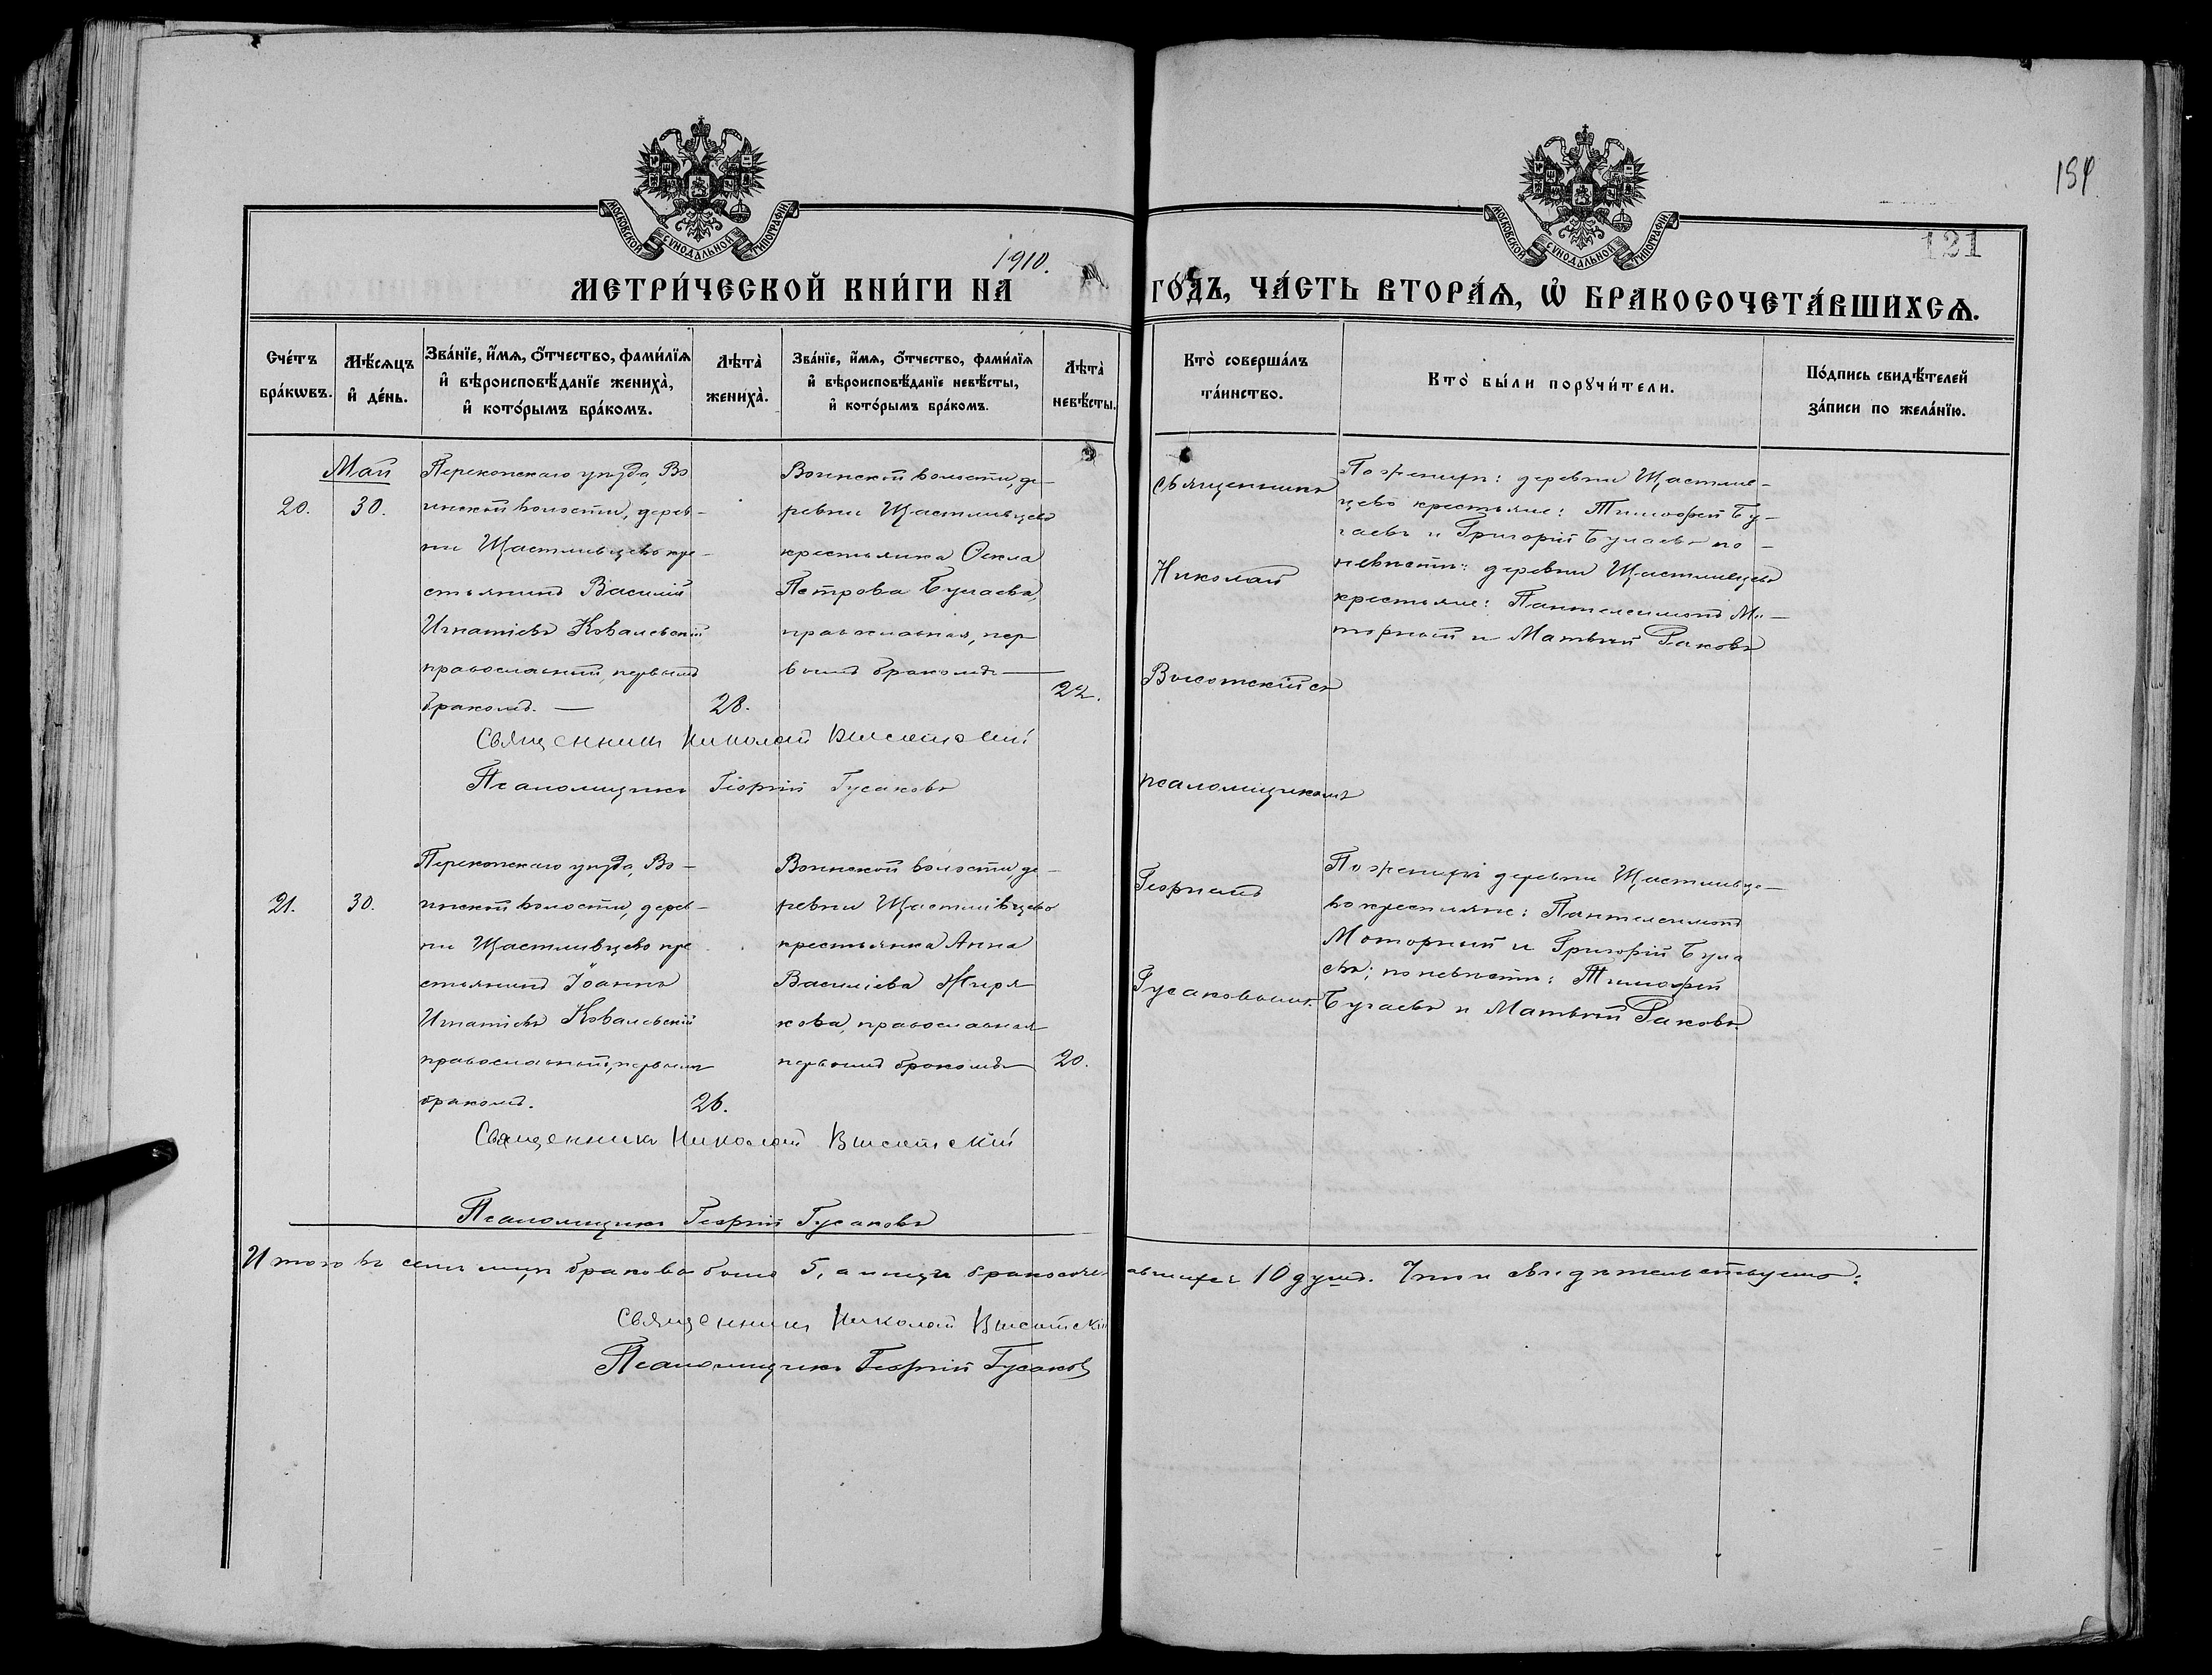 191
121
МОСКОВСКОЙ СѴНОДАЛЬНОЙ ТИПОГРАФІИ
МОСКОВСКОЙ СѴНОДАЛЬНОЙ ТИПОГРАФІИ
1910.
МЕТРИ́ЧЕСКОЙ КНИ́ГИ НА ГО́ДЪ, ЧА́СТЬ ВТОРА́Ѧ, Ѽ БРАКОСОЧЕТА́ВШИХСѦ.
Сче́тъ
бра́кѡвъ.
Мѣ́сѧцъ
и҆ де́нь.
Зва́нїе, и҆́мѧ, ѻ҆́тчество, фами́лїѧ
и҆ вѣроисповѣ́данїе жениха̀,
и҆ кото́рымъ бра́комъ.
Лѣта̀
жениха̀.
Зва́нїе, и҆́мѧ, ѻ҆́тчество, фами́лїѧ
и҆ вѣроисповѣ́данїе невѣ́сты,
и҆ кото́рымъ бра́комъ.
Лѣта̀
невѣ́сты.
Кто̀ соверша́лъ
та́инство.
Кто̀ бы́ли порꙋчи́тели.
По́дпись свидѣ́телей
за́писи по жела́нїю.
Май
20.
30.
Перекопскаго уѣзда, Во
инской волости, дерев-
ни Щастливцево кре-
стьянинъ Василій
Игнатіевъ Ковалевскій
православный, первымъ
бракомъ. —
28.
Воинской волости, де-
ревни Щастливцево
крестьянка Ѳекла
Петрова Бугаева,
православная, пер
вымъ бракомъ —
22.
Священникъ Николай Высотскій
Псаломщикъ Георгій Гусаковъ
Священникъ
Николай
Высотскій съ
псаломщикомъ
Георгіемъ
Гусаковымъ.
По женихѣ: деревни Щастлив-
цево крестьяне: Тимофей Бу-
гаевъ и Григорій Бугаевъ по-
невѣстѣ: деревни Щастливцево
крестьяне: Пантелеимонъ Мо-
торный и Матвѣй Раковъ
21.
30.
Перекопскаго уѣзда, Во-
инской волости, дерев-
ни Щастливцево кре
стьянинъ Іоаннъ
Игнатіевъ Ковалевскій
православный, первымъ
бракомъ.
26.
Воинской волости, де-
ревни Щастливцево
крестьянка Анна
Василіева Жиря
кова, православная
первымъ бракомъ
20.
По женихѣ деревни Щастливце-
во крестьяне: Пантелеимонъ
Моторный и Григорій Буга
евъ; по невѣстѣ: Тимофей
Бугаевъ и Матвѣй Раковъ.
Священникъ Николай Высотскій
Псаломщикъ Георгій Гусаковъ
Итого въ семъ мцѣ браковъ было 5, а лицъ бракосочетавшихся 10 душъ. Что и свидѣтельствуемъ:
Священникъ Николай Высотскій
Псаломщикъ Георгій Гусаковъ